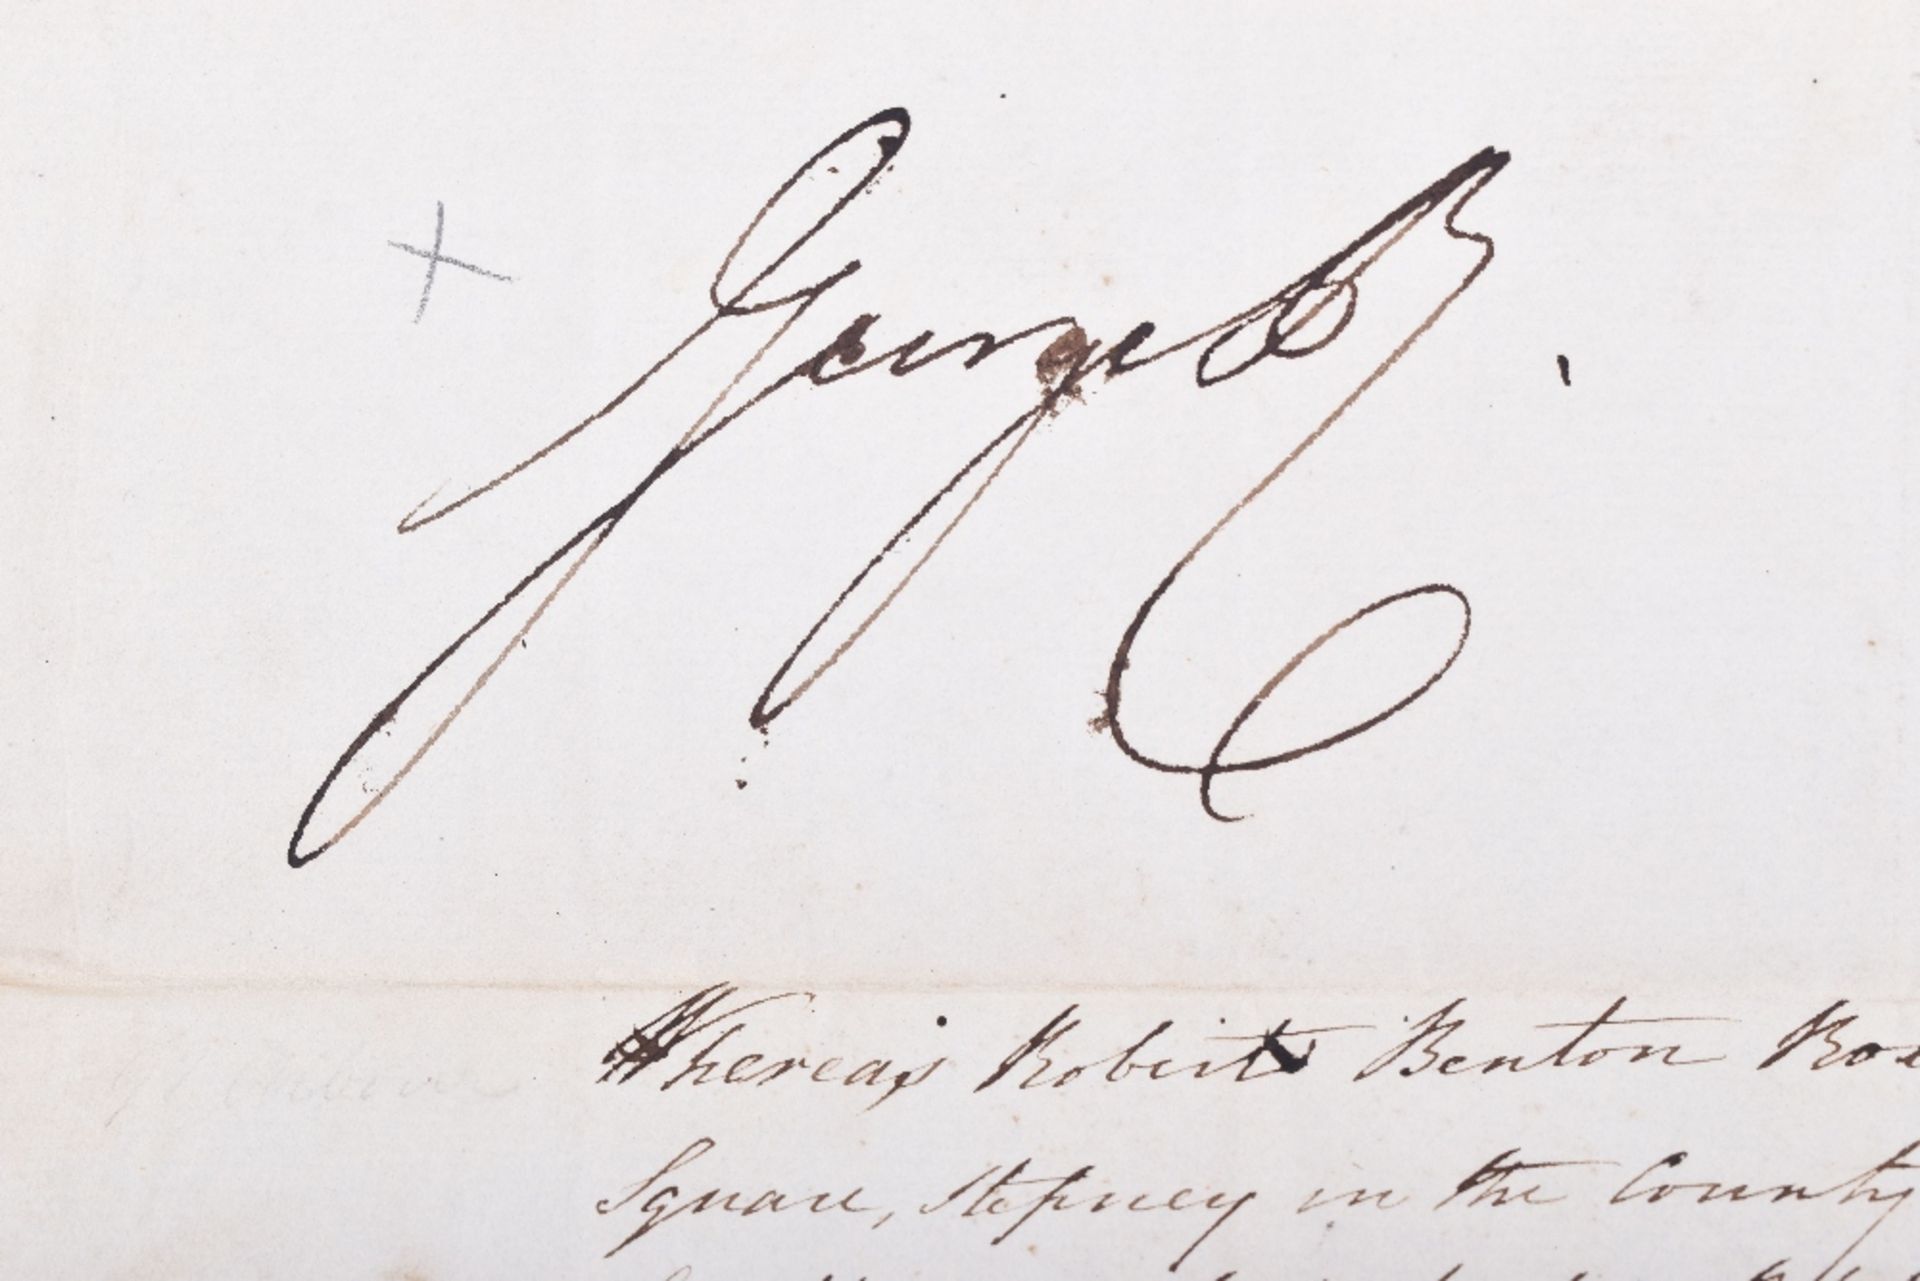 George R.
Whereas Robert Benton
Square, Stepney in the County